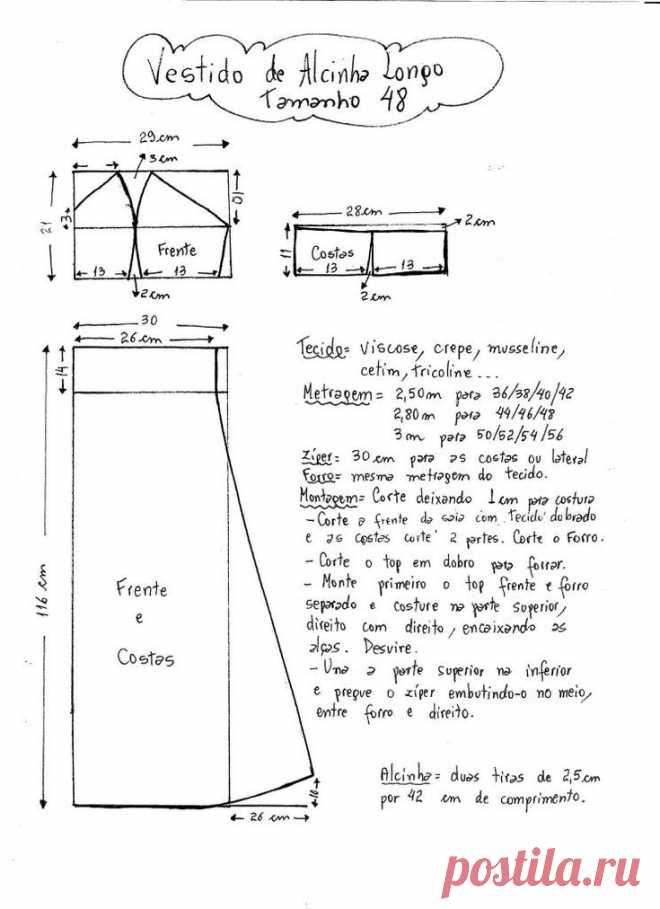 Vestido de Alcinha Longo
Tamanho 48
29 cm
3 cm
21
3
10
Frente
13
13
2 cm
28 cm
2 cm
11
Costas
13
13
2 cm
30
26 cm
14
116 cm
Frente
e
Costas
10
26 cm
Tecido= viscose, crepe, musseline,
cetim, tricoline...
Metragem= 2,50m para 36/38/40/42
2,80m para 44/46/48
3m para 50/52/54/56
Zíper= 30cm para as costas ou lateral
Forro= mesma metragem do tecido.
Montagem= Corte deixando 1cm para costura
- Corte a frente da saia com tecido dobrado
e as costas corte 2 partes. Corte o Forro.
- Corte o top em dobro para forrar.
- Monte primeiro o top frente e forro
separado e costure na parte superior,
direito com direito, encaixando as
alças. Desvire.
- Una a parte superior na inferior
e pregue o zíper embutindo-o no meio,
entre forro e direito.
Alcinha= duas tiras de 2,5cm
por 42 cm de comprimento.
postila.ru